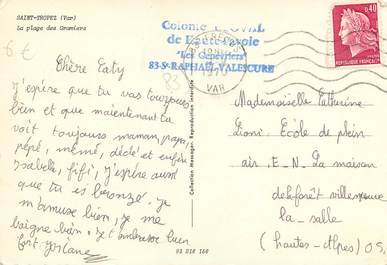 SAINT-TROPEZ (Var)
La plage des Graniers
6 €
Chère Caty
j'espère que tu vas toujours
bien et que maintenant tu
voit toujours maman, papa,
pépé, mémé, dédé et enfin
Isabelle, fifi, j'espère aussi
que tu es bronzé. je
m'amuse bien, je me
baigne bien. je t'embrasse bien
fort. Josiane
Production Messager. Reproduction interdite.
83 D18 168
Colonie LAOVAL
de Haute-Savoie
"Les Genévriers"
83-St-RAPHAËL-VALESCURE
83
VAR
0,40
REPUBLIQUE FRANÇAISE
Mademoiselle Catherine
Lioni. Ecole de plein
air. E-N. La maison
de la forêt villeneuve
la-salle
(hautes-Alpes) 05.